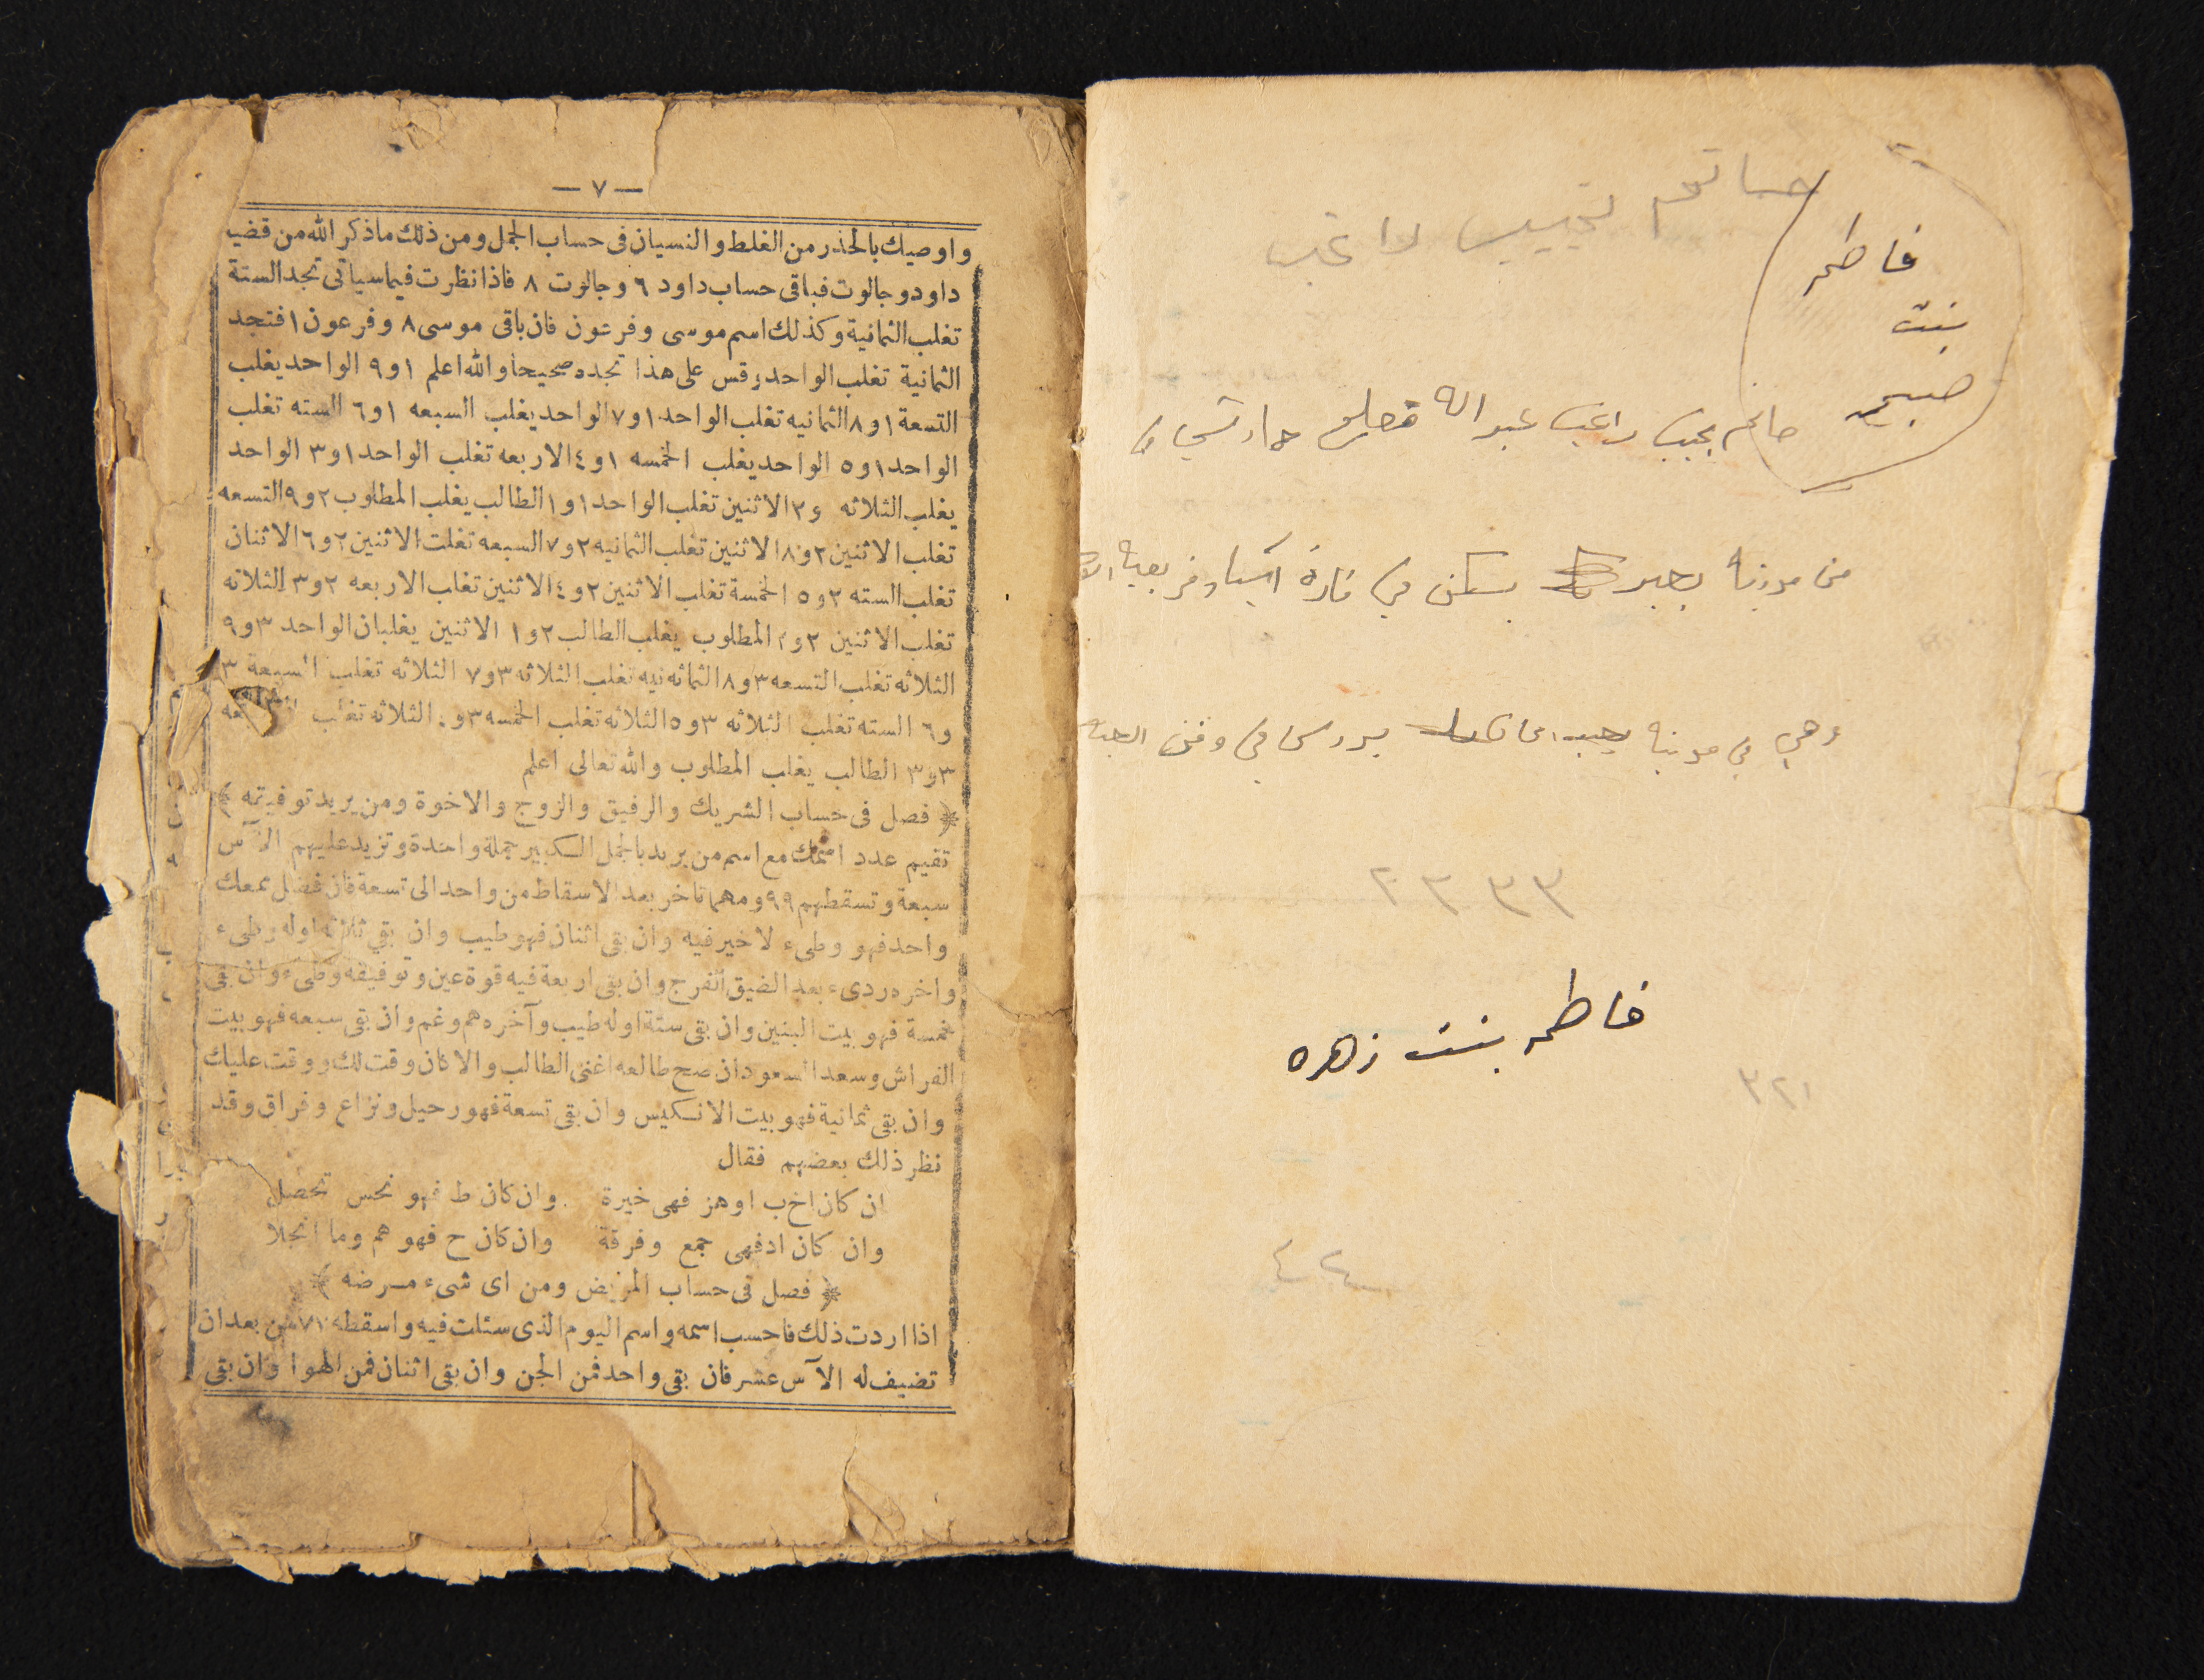 حاتم نجيب راغب
فاطمه
بنت
صبحيه
حاتم نجيب راغب عبد الله
من مدينة يسكن في قارة آسيا
وهي في مدينة يدرس في
٢٣٣٣
فاطمه بنت زهره
٣٢١
٤٢
— ٧ —
واوصيك بالحذر من الغلط والنسيان فى حساب الجمل ومن ذلك ماذكر الله من قضية
داود وجالوت فباقى حساب داود ٦ وجالوت ٨ فاذا نظرت فيما سيأتى تجد الستة
تغلب الثمانية وكذلك اسم موسى وفرعون فان باقى موسى ٨ وفرعون ١ فتجد
الثمانية تغلب الواحد وقس على هذا تجده صحيحا والله اعلم ١ و٩ الواحد يغلب
التسعة ١ و٨ الثمانيه تغلب الواحد ١ و٧ الواحد يغلب السبعه ١ و٦ السته تغلب
الواحد ١ و٥ الواحد يغلب الخمسه ١ و٤ الاربعه تغلب الواحد ١ و٣ الواحد
يغلب الثلاثه و٢ الاثنين تغلب الواحد ١ و١ الطالب يغلب المطلوب ٢ و٩ التسعه
تغلب الاثنين ٢ و٨ الاثنين تغلب الثمانيه ٢ و٧ السبعه تغلت الاثنين ٢ و٦ الاثنان
تغلب السته ٢ و٥ الخمسة تغلب الاثنين ٢ و٤ الاثنين تغلب الاربعه ٢ و٣ الثلاثه
تغلب الاثنين ٢ و٢ المطلوب يغلب الطالب ٢ و١ الاثنين يغلبان الواحد ٣ و٩
الثلاثه تغلب التسعه ٣ و٨ الثمائه نيه تغلب الثلاثه ٣ و٧ الثلاثه تغلب السبعة ٣
و٦ السته تغلب الثلاثه ٣ و٥ الثلاثه تغلب الخمسه ٣ و الثلاثه تغلب
٣ و٣ الطالب يغلب المطلوب والله تعالى اعلم
﴿ فصل فى حساب الشريك والرفيق والزوج والاخوة ومن يريد توفيقه ﴾
تقيم عدد اسمك مع اسم من يريد بالجمل الكبير جملة واحدة وتزيد عليهم الآس
سبعة وتسقطهم ٩٩ ومهما تأخر بعد الاسقاط من واحد الى تسعة فان فضل معك
واحد فهو وطىء لا خير فيه وان بقى اثنان فهو طيب وان بقي ثلاثه اوله وطىء
واخره ردىء بعد الضيق الفرج وان بقى اربعة فيه قوة عين وتوفيقه وطىء وان بقى
خمسة فهو بيت البنين وان بقى ستة اوله طيب وآخره هم وغم وان بقى سبعه فهو بيت
الفراش وسعد السعود ان صح طالعه اغنى الطالب والا كان وقت لك ووقت عليك
وان بقى ثمانية فهو بيت الانكيس وان بقى تسعة فهو رحيل ونزاع وفراق وقد
نظر ذلك بعضهم فقال
ان كان اخ ب او هز فهى خيرة وان كان ط فهو نحس تحصل
وان كان ادفهى جمع وفرقة وان كان ح فهو هم وما انجلا
﴿ فصل فى حساب المريض ومن اى شىء مرضه ﴾
اذا اردت ذلك فاحسب اسمه واسم اليوم الذى سئلت فيه واسقطه من بعد ان
تضيف له الآس عشر فان بقى واحد فمن الجن وان بقى اثنان فمن الهوا وان بقى